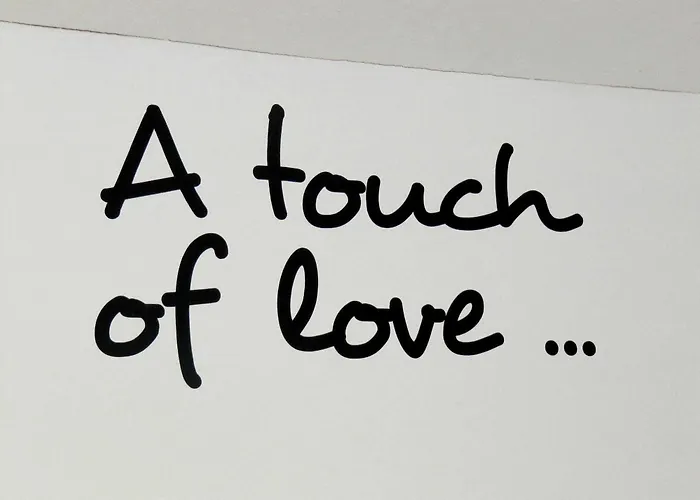 A touch
of love ...